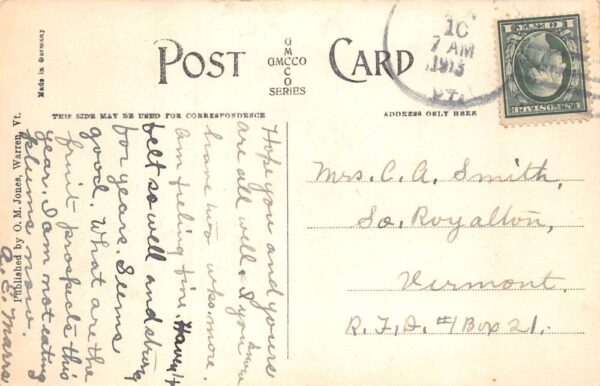 POST CARD
GMCCO
GMCCO
SERIES
THIS SIDE MAY BE USED FOR CORRESPONDENCE
ADDRESS ONLY HERE
10
7 AM
1913
VT.
Made in Germany
Published by O. M. Jones, Warren, Vt.
Hope you and yours
are all well. I
have two more.
Am feeling fine. Haven't
felt so well and strong
for years. Seems
good. What are the
fruit prospects this
year. I am not eating
plums now.
Mrs. C. A. Smith,
So. Royalton,
Vermont.
R. F. D. #1 Box 21.